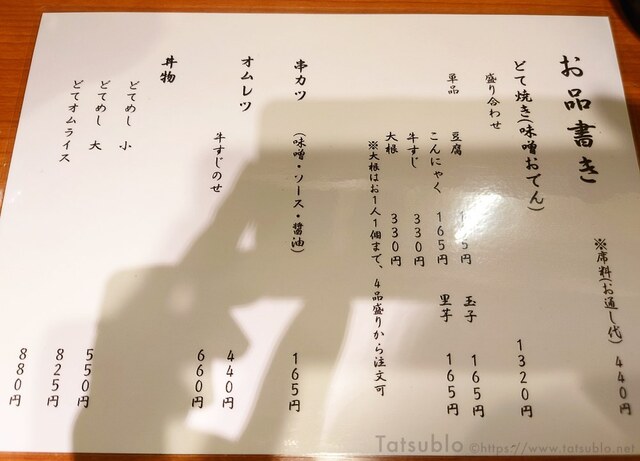 お品書き
※席料(お通し代) 440円
どて焼き(味噌おてん)
盛り合わせ 1320円
単品
豆腐 165円 玉子 165円
こんにゃく 165円 里芋 165円
牛すじ 330円
大根 330円
※大根はお1人1個まで、4品盛りから注文可
串カツ (味噌・ソース・醤油) 165円
オムレツ 440円
牛すじのせ 660円
丼物
どてめし 小 550円
どてめし 大 825円
どてオムライス 880円
Tatsublo ©https://www.tatsublo.net